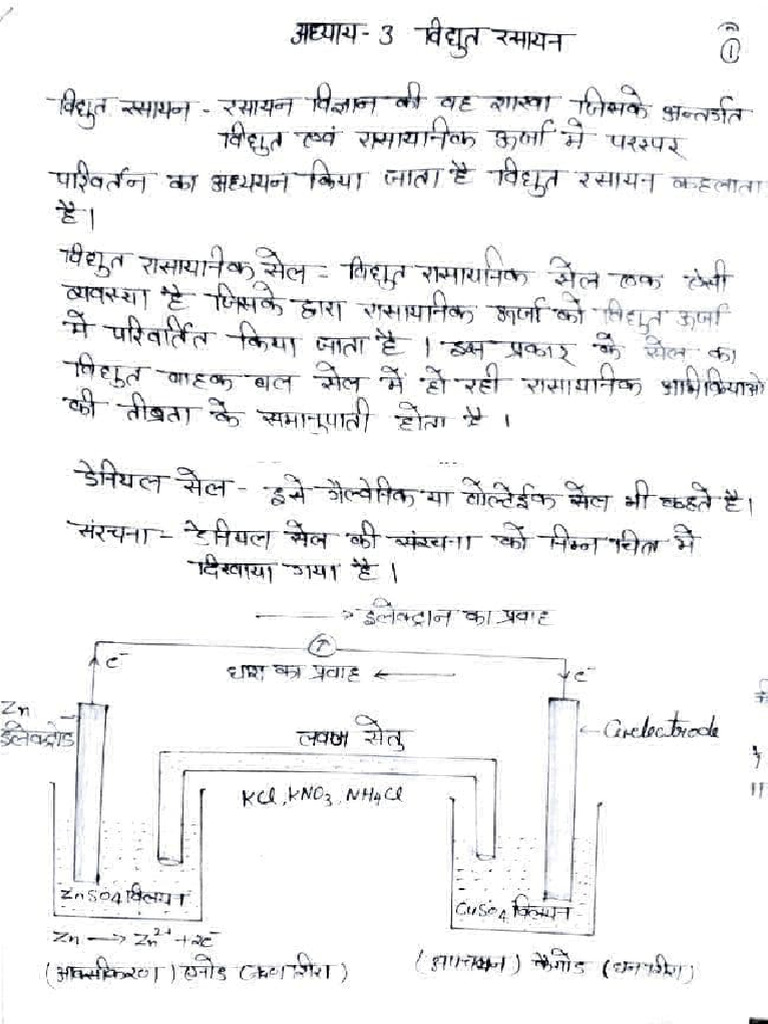 अध्याय - 3 विद्युत रसायन
1
विद्युत रसायन - रसायन विज्ञान की वह शाखा जिसके अन्तर्गत
विद्युत एवं रासायनिक ऊर्जा में परस्पर
परिवर्तन का अध्ययन किया जाता है विद्युत रसायन कहलाता
है।
विद्युत रासायनिक सेल = विद्युत रासायनिक सेल एक ऐसी
व्यवस्था है जिसके द्वारा रासायनिक ऊर्जा को विद्युत ऊर्जा
में परिवर्तित किया जाता है। इस प्रकार के सेल का
विद्युत वाहक बल सेल में हो रही रासायनिक अभिक्रियाओं
की तीव्रता के समानुपाती होता है।
डेनियल सेल - इसे गैल्वेनिक या वोल्टेईक सेल भी कहते है।
संरचना - डेनियल सेल की संरचना को निम्न चित्र में
दिखाया गया है।
→ इलेक्ट्रान का प्रवाह
e⁻
धारा का प्रवाह ←
e⁻
Zn
इलेक्ट्रोड
लवण सेतु
Cu electrode
KCl, KNO₃, NH₄Cl
ZnSO₄ विलयन
CuSO₄ विलयन
Zn → Zn²⁺ + 2e⁻
(आक्सीकरण) एनोड (ऋणशिरा)
(अपचयन) कैथोड (धनशिरा)